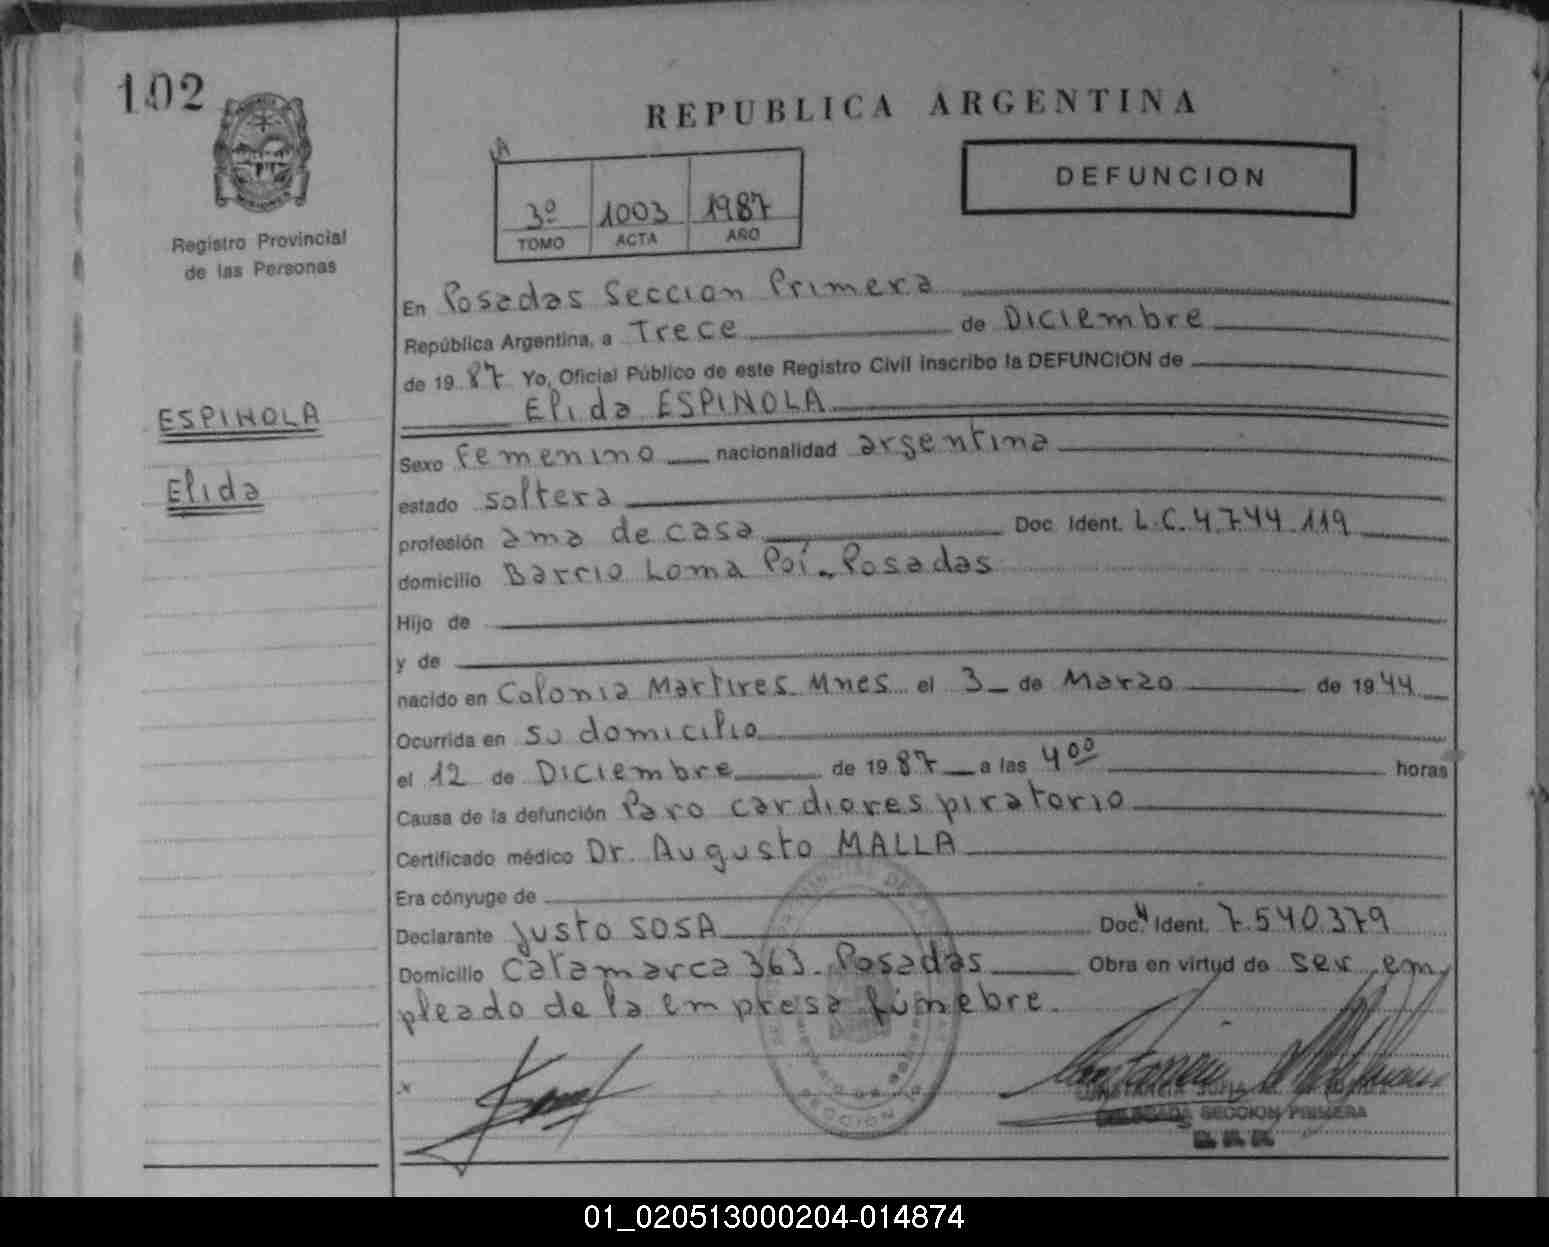 102
REPUBLICA ARGENTINA
A
3º 1003 1987
TOMO ACTA AÑO
DEFUNCION
Registro Provincial
de las Personas
ESPINOLA
Elida
En Posadas Seccion Primera
República Argentina, a Trece de Diciembre
de 19 87 Yo, Oficial Público de este Registro Civil inscribo la DEFUNCION de
Elida ESPINOLA
Sexo femenino nacionalidad argentina
estado soltera
profesión ama de casa Doc. Ident. L.C. 4.744.119
domicilio Barrio Loma Poí - Posadas
Hijo de
y de
nacido en Colonia Martires Mnes el 3 de Marzo de 1944
Ocurrida en su domicilio
el 12 de Diciembre de 1987 a las 4 00 horas
Causa de la defunción Paro cardiorespiratorio
Certificado médico Dr. Augusto MALLA
Era cónyuge de
Declarante Justo SOSA Doc. Ident. 7.540.379
Domicilio Catamarca 363 - Posadas Obra en virtud de ser em
pleado de la empresa fúnebre.
x
SECCION PRIMERA
SECCION
01_020513000204-014874